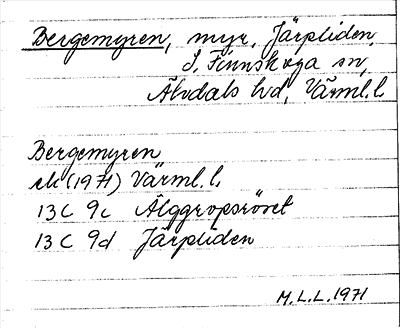 Bergemyren, myr, Järpliden,
S. Finnskoga sn,
Älvdals hd, Värml. l.
Bergemyren
ek (1971) Värml. l.
13 C 9c Älggropsröset
13 C 9d Järpliden
M. L. L. 1971